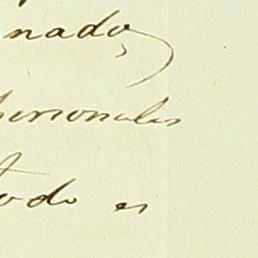 nado,
personales
todo es